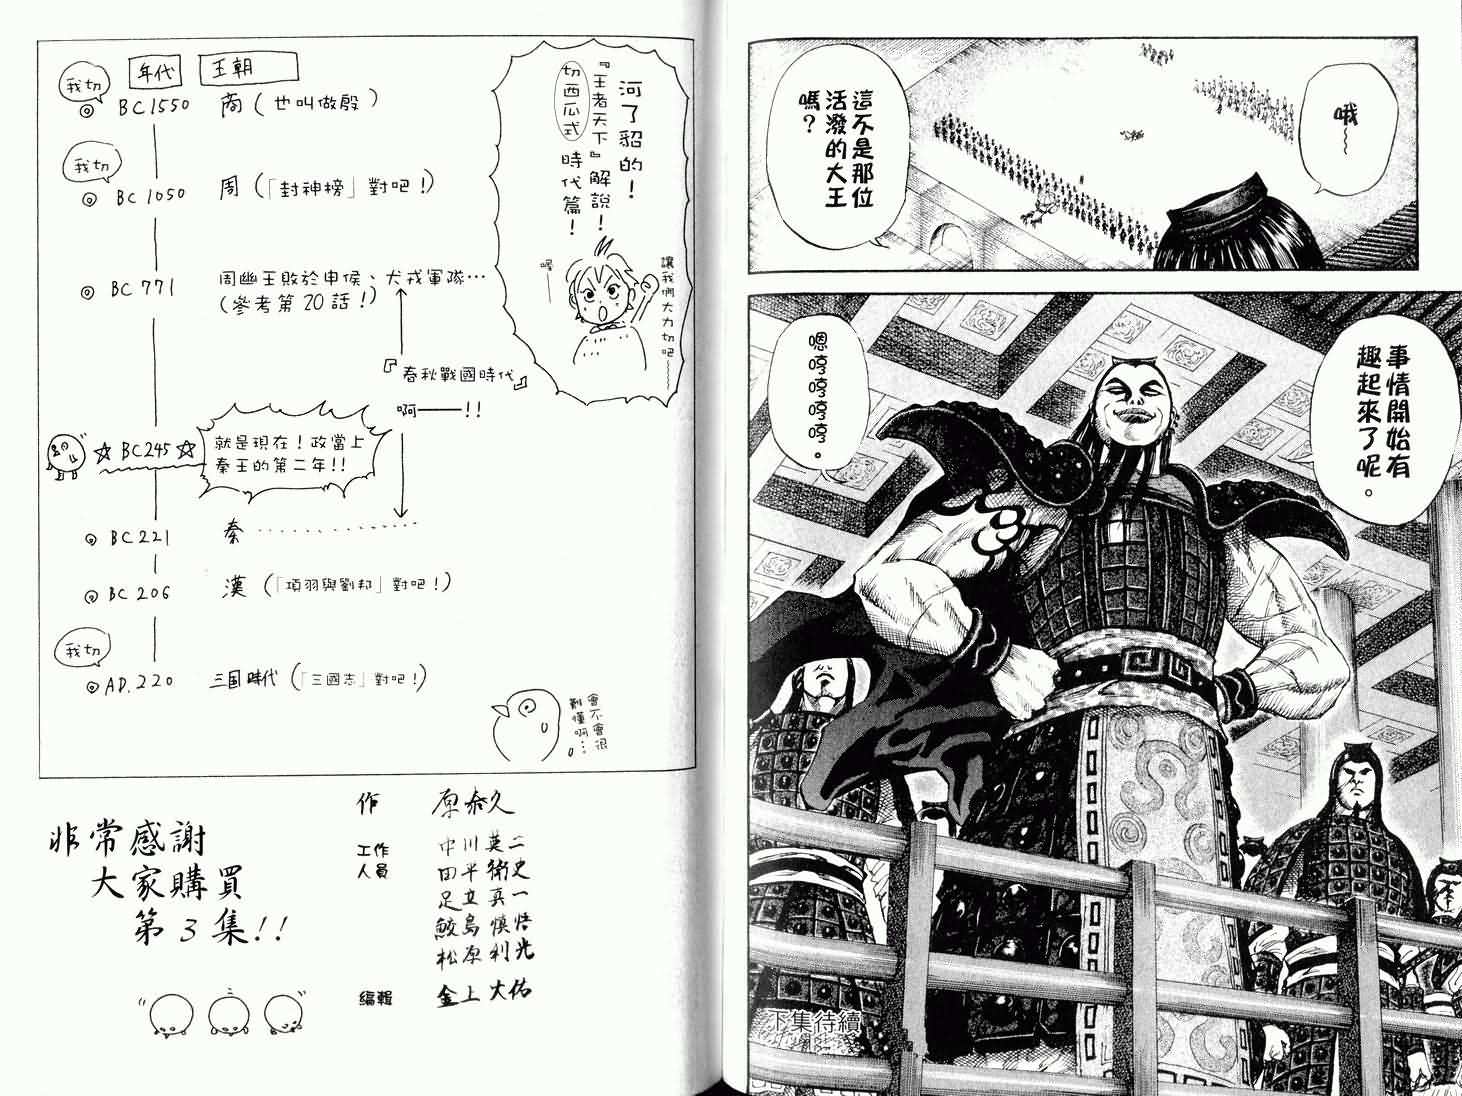 哦～
這不是那位
活潑的大王
嗎？
事情開始有
趣起來了呢。
嗯哼哼哼哼。
下集待續
河了貂的！
『王者天下』解說！
切西瓜式時代篇！
讓我們大力切吧～～
喔——
年代 王朝
我切
BC 1550 商（也叫做殷）
我切
BC 1050 周（「封神榜」對吧！）
BC 771 周幽王敗於申侯、犬戎軍隊…
（參考第20話！）
『春秋戰國時代』
啊——！！
☆BC245☆ 就是現在！政當上
秦王的第二年!!
BC 221 秦……………
BC 206 漢（「項羽與劉邦」對吧！）
我切
AD.220 三国時代（「三國志」對吧！）
會不會很
難懂啊…。
非常感謝
大家購買
第3集!!
作 原泰久
工作
人員
中川英二
田平衛史
足立真一
鮫島慎悟
松原利光
編輯 金上大佑